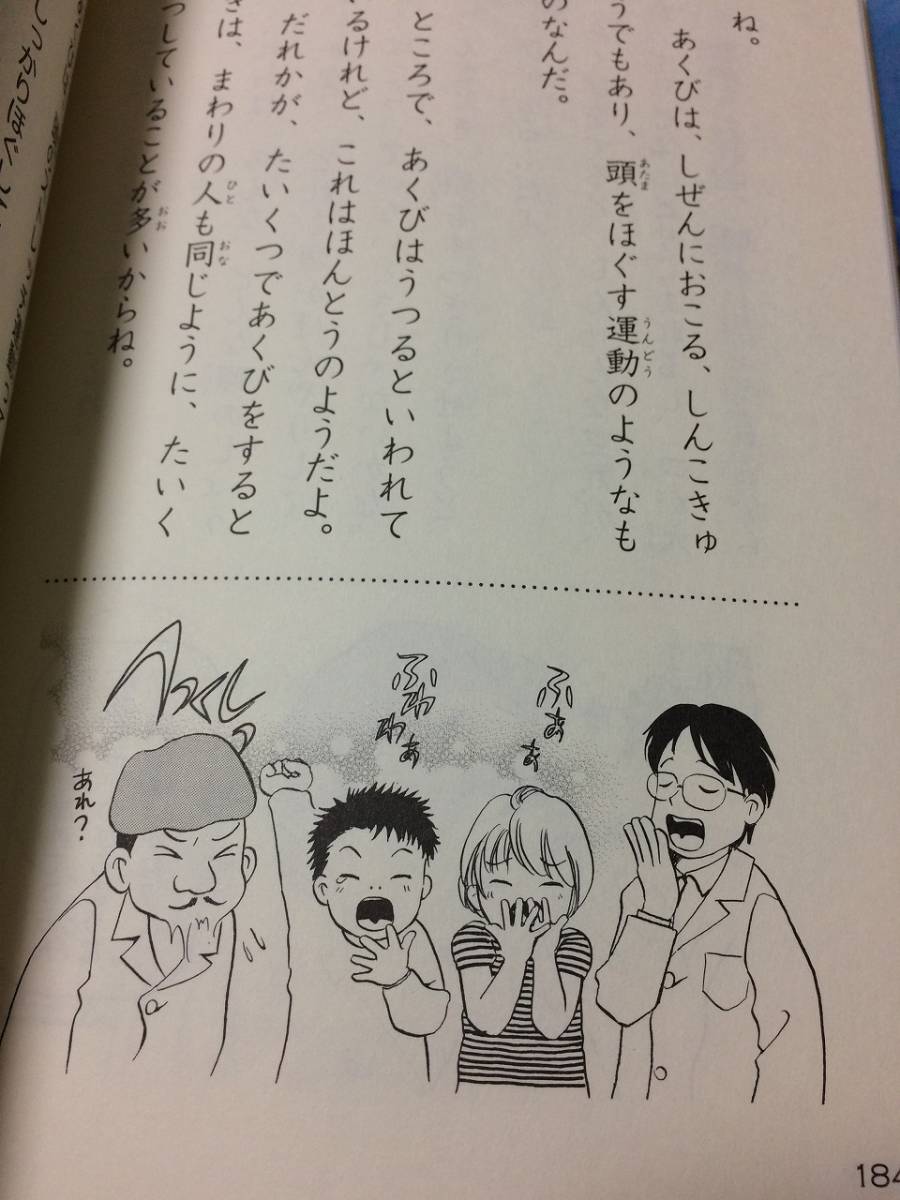 ね。
あくびは、しぜんにおこる、しんこきゅ
うでもあり、頭をほぐす運動のようなも
のなんだ。
ところで、あくびはうつるといわれて
いるけれど、これはほんとうのようだよ。
だれかが、たいくつであくびをすると
きは、まわりの人も同じように、たいく
つしていることが多いからね。
ふぁぁ
ふわわぁ
へっくしっ
あれ?
184